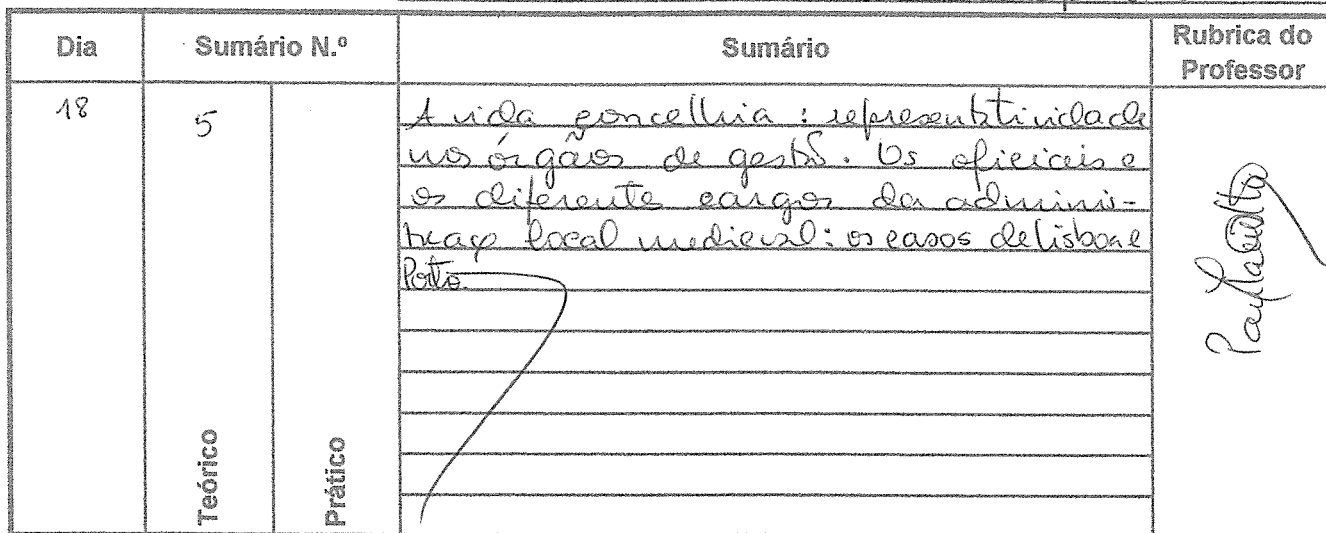 Dia
Sumário N.º
Sumário
Rubrica do
Professor
18
5
A vida concelhia : representtividade
nos órgãos de gestão. Os oficiais e
os diferente cargos da adminis-
traçº local medieval: os casos de Lisboa e
Porto.
Teórico
Prático